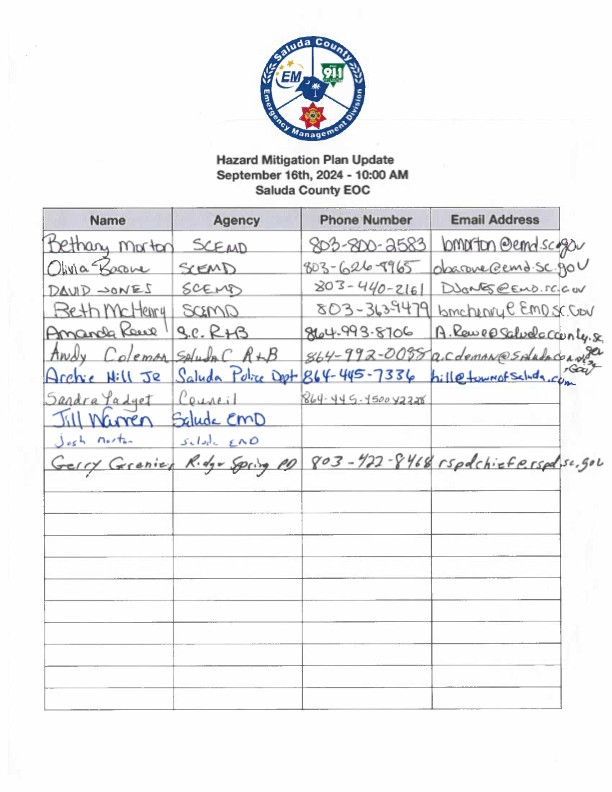 Saluda County
EM
911
Emergency Management Division
Hazard Mitigation Plan Update
September 16th, 2024 - 10:00 AM
Saluda County EOC
Name Agency Phone Number Email Address
Bethany Morton SCEMD 803-800-2583 bmorton@emd.sc.gov
Olivia Barone SCEMD 803-626-8965 obarone@emd.sc.gov
DAVID JONES SCEMD 803-440-2161 DJONES@EMD.SC.GOV
Beth McHenry SCEMD 803-363-9479 bmchenry@EMD.SC.Gov
Amanda Rowe S.C. R+B 864-993-8706 A.Rowe@saludacounty.sc.gov
Andy Coleman Saluda C R+B 864-992-0098
Archie Hill Jr Saluda Police Dept 864-445-7336 hill@townofsaluda.com
Sandra Padget Council 864-445-4500 x2228
Jill Warren Saluda EMD
Josh Morton Saluda EMD
Gerry Grenier Ridge Spring PD 803-422-8468 rspdchief@rspd.sc.gov